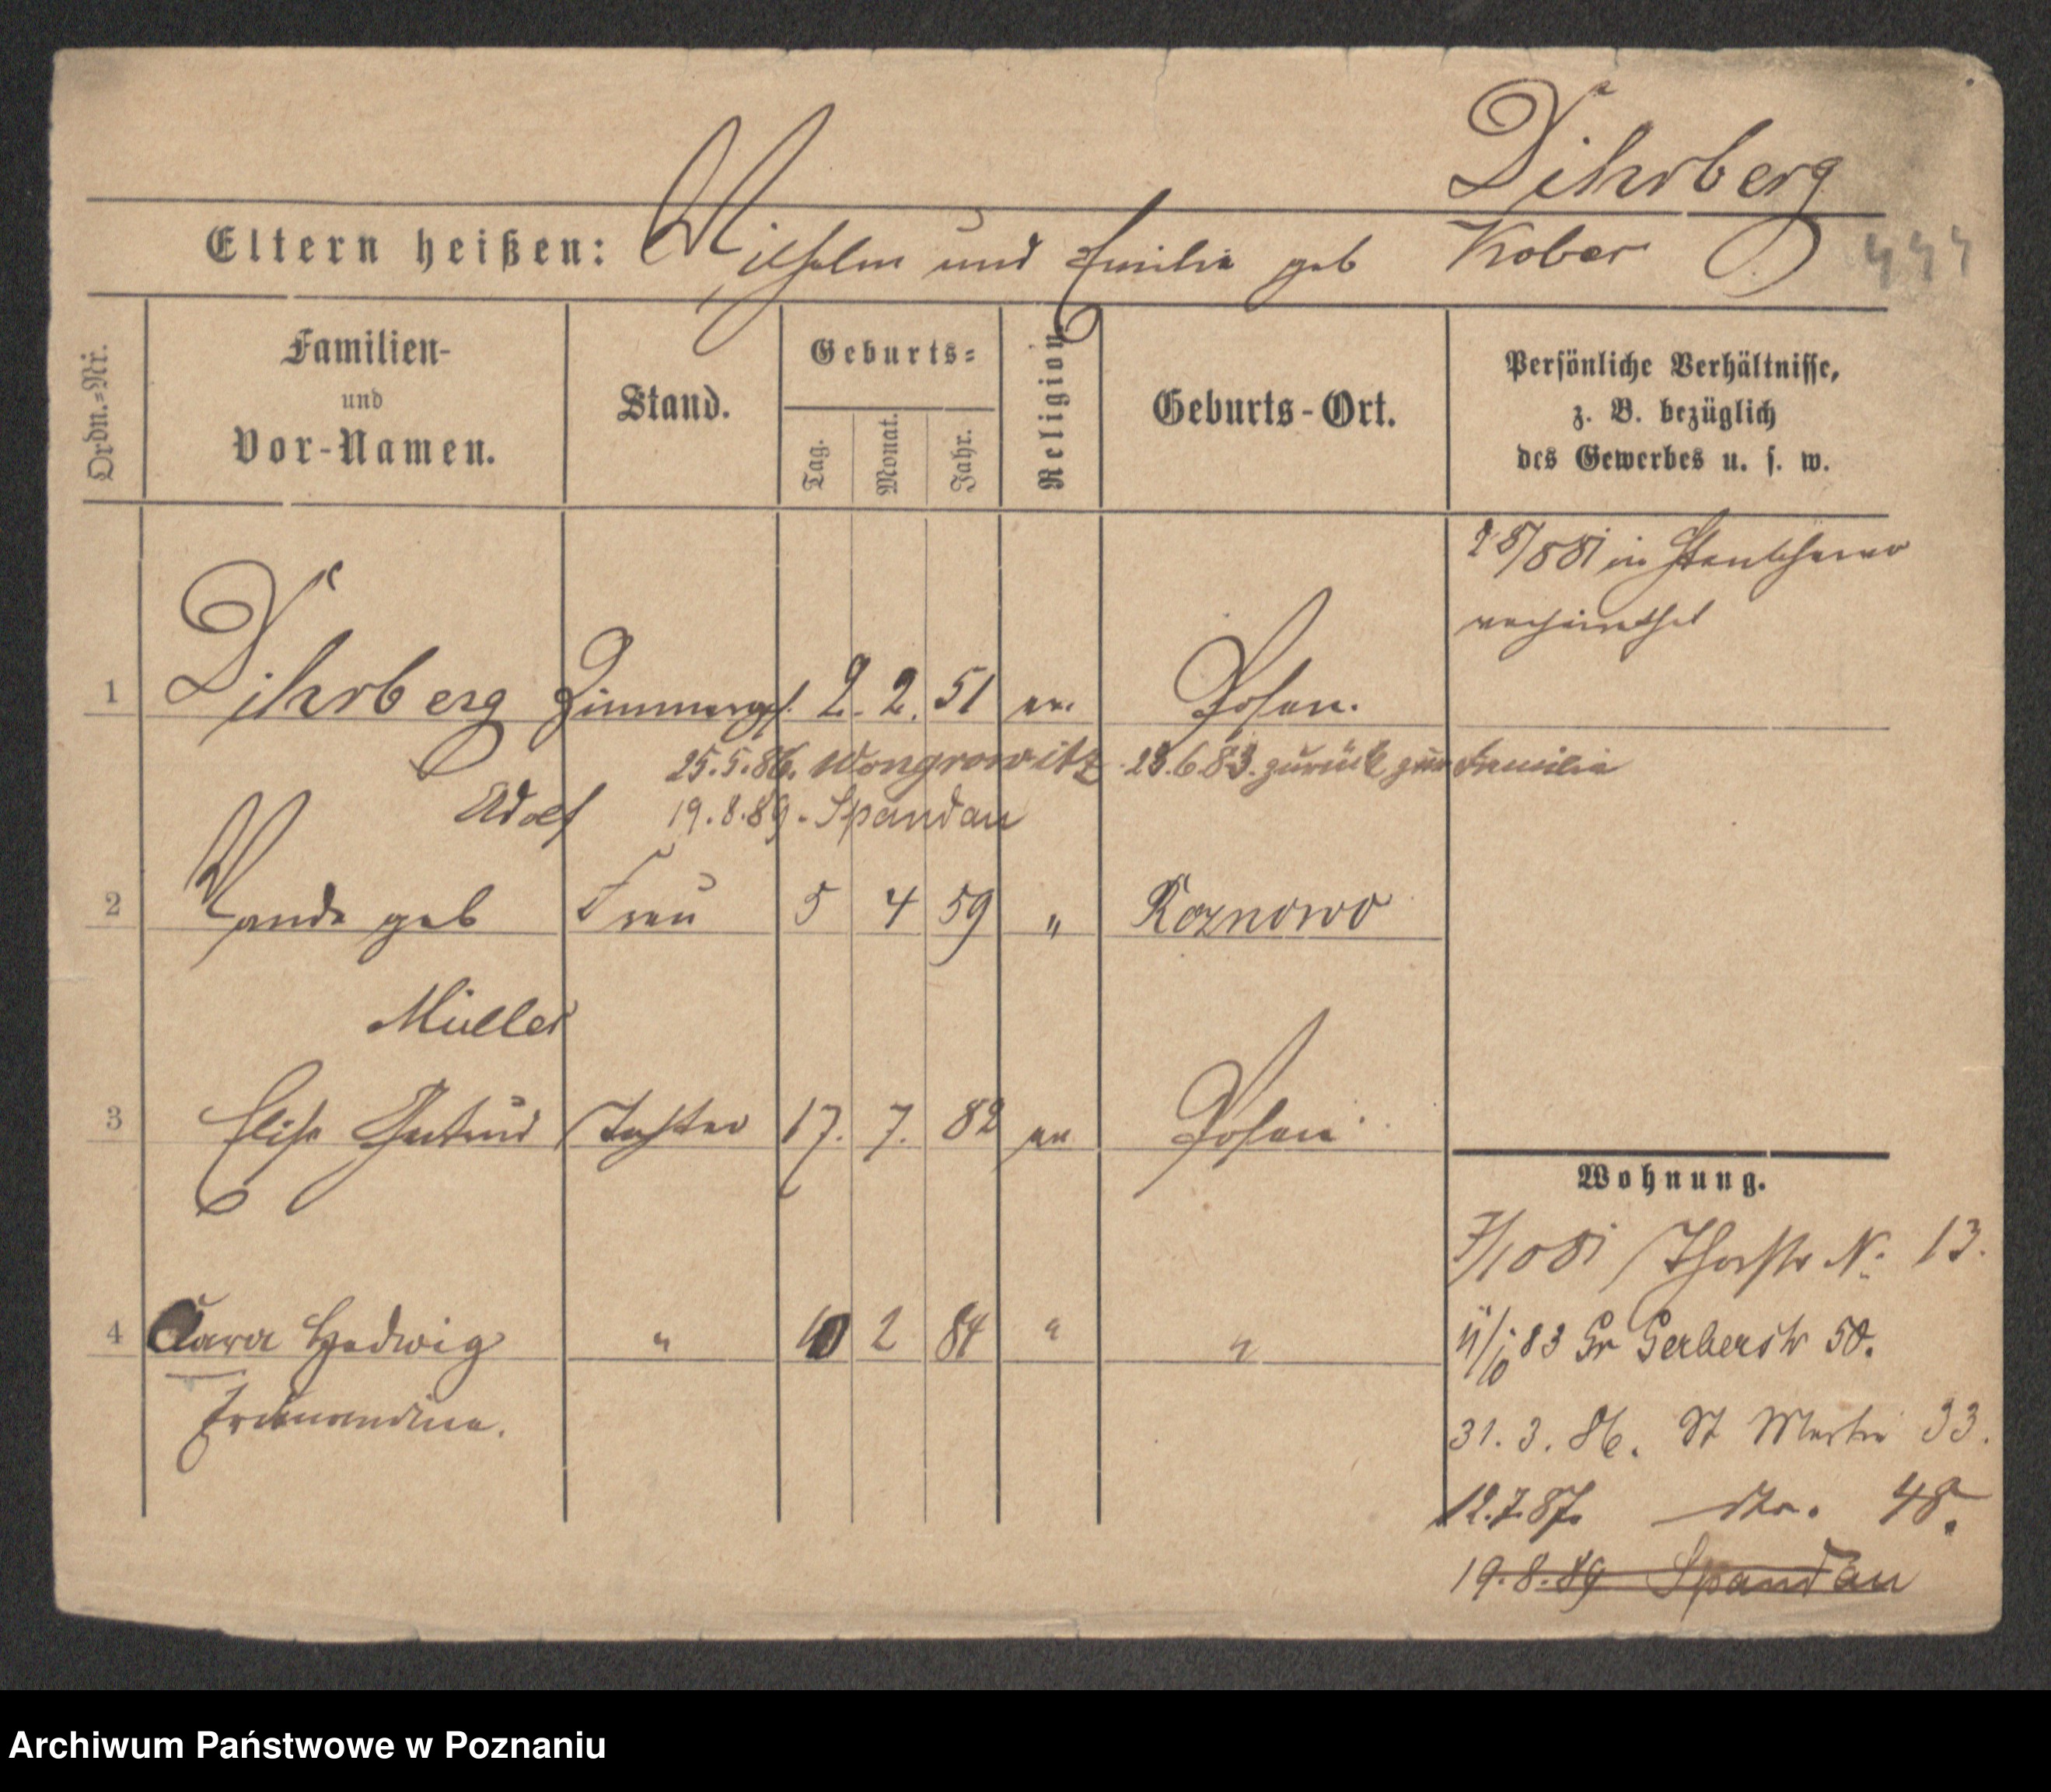 Dihrberg
Eltern heißen: Wilhelm und Emilie geb Kober
444
Ordn.=Nr.
Familien-
und
Vor-Namen.
Stand.
Geburts=
Tag.
Monat.
Jahr.
Religion.
Geburts-Ort.
Persönliche Verhältnisse,
z. B. bezüglich
des Gewerbes u. s. w.
28/8 81 in
verheirathet
1 Dihrberg Zimmerges. 2. 2. 51 ev. Posen.
25.5.86. Wongrowitz 23.6.83. zurück zur Familie
Adolf 19.8.89. Spandau
2 Wanda geb Frau 5 4 59 " Roznowo
Müller
3 Elise Gertrud Tochter 17. 7. 82 ev Posen
Wohnung.
7/10 81 Thorstr N. 13.
4 Clara Hedwig " 10 2 84 " "
11/10 83 Gr Gerberstr 50.
31. 3. 86. St Martin 33.
12.7.87. dto. 48.
19.8.89 Spandau
Archiwum Państwowe w Poznaniu